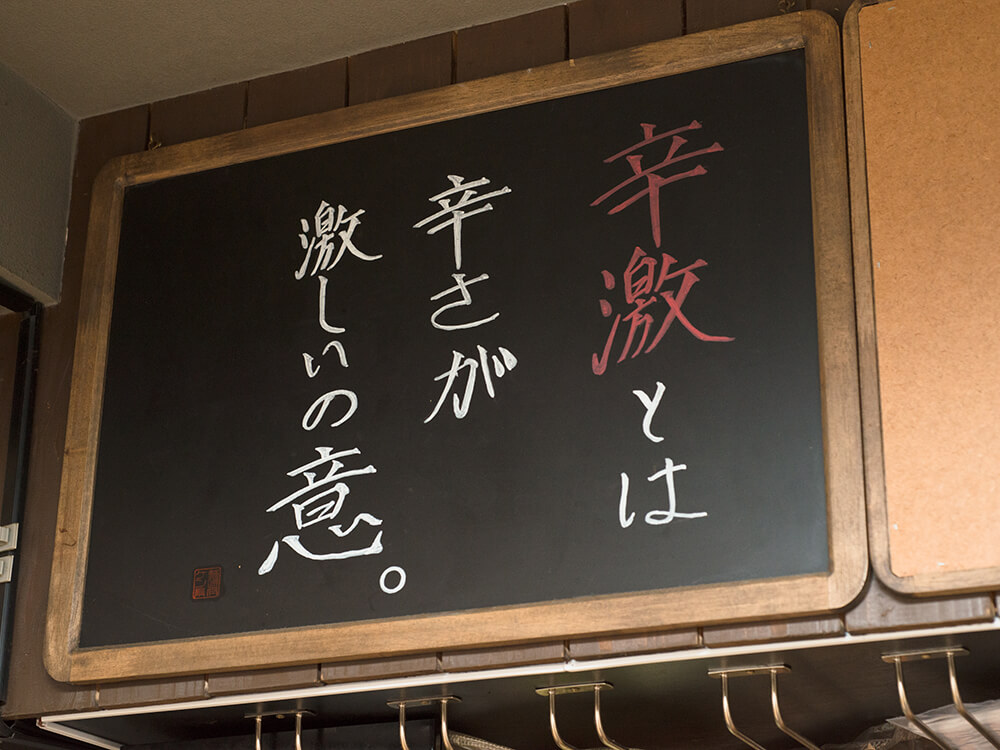 辛激とは
辛さが
激しいの意。